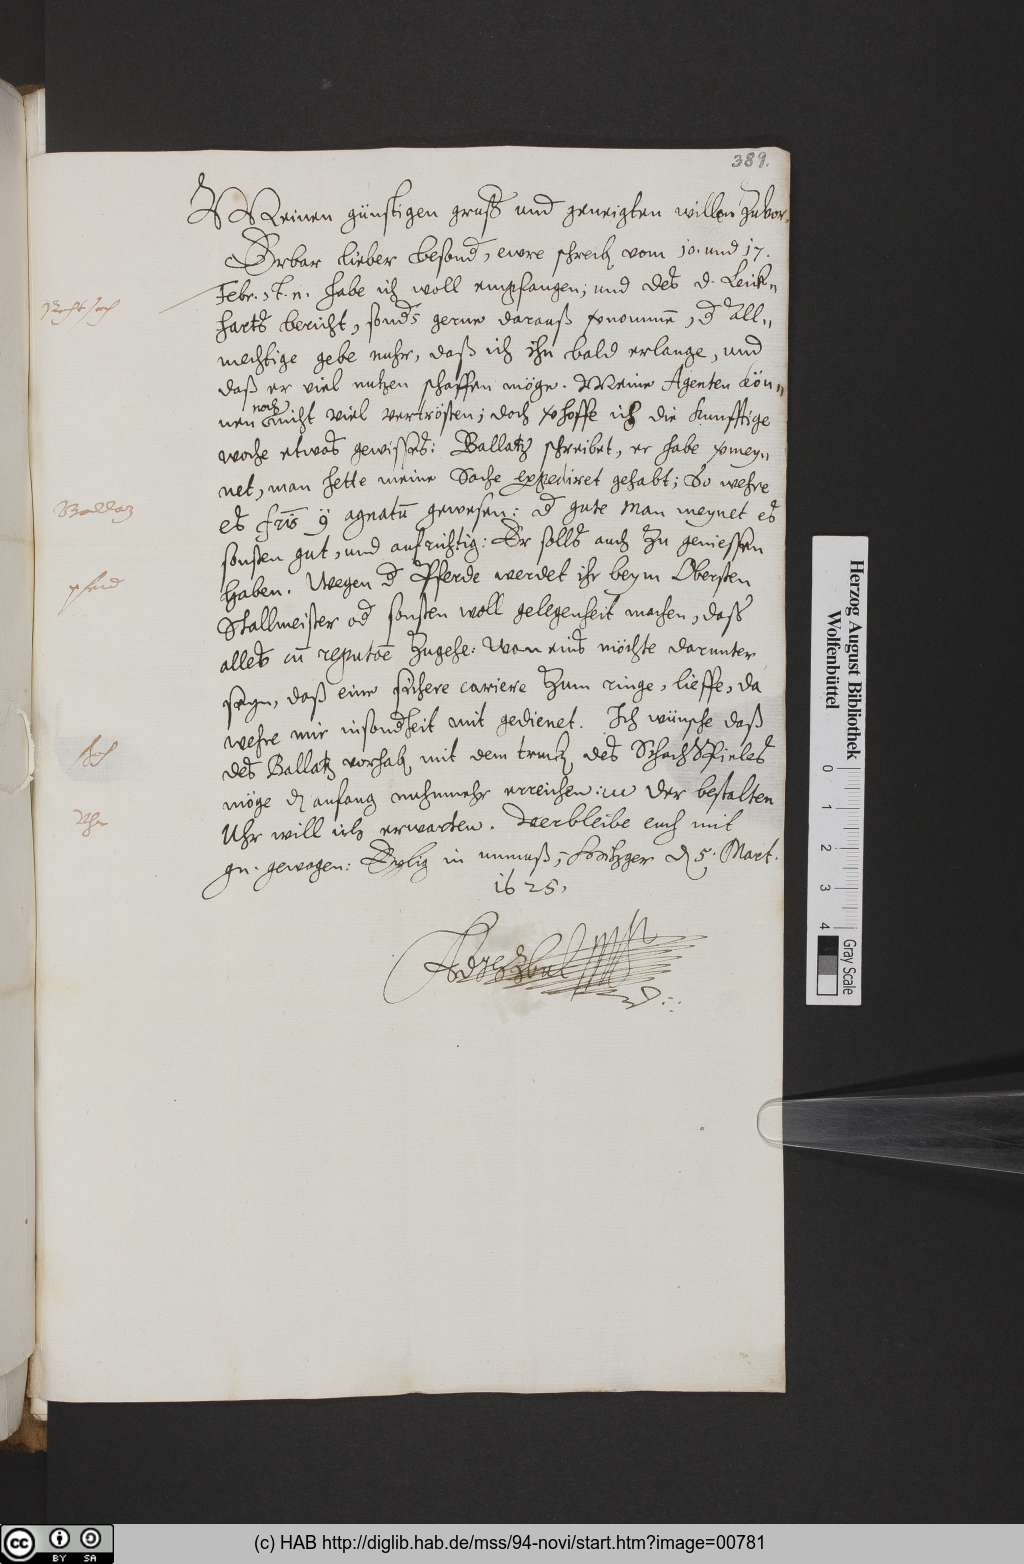 389.
Meinen günstigen gruß und geneigten willen zuvor.
Erbar lieber besond, ewre schreib vom 10. und 17.
Febr. st. n. habe ich woll empfangen; und des d. Leick-
harts bericht, sonds gerne darauß vernommē, d all-
mechtige gebe nuhr, daß ich ihn bald erlange, und
daß er viel nutzen schaffen möge. Meine Agenten kön-
noch
nen nicht viel vertrösten; doch verhoffe ich die kunfftige
woche etwas gewisses: Ballatz schreibet, er habe vermey-
net, man hette meine Sache expediret gehabt; So wehre
es gewesen: d gute man meynet es
sonsten gut, und aufrichtig: Er solls auch zu geniessen
haben. Wegen d Pferde werdet ihr beym Obersten
Stallmeister od sonsten woll gelegenheit machen, daß
alles cū reputoē zugehe: Wan eins möchte darunter
seyn, daß eine sichere cariere zum ringe, lieffe, da
wehre mir insondheit mit gedienet. Ich wünsche daß
des Ballatz vorhab mit dem truck des SchachSpieles
möge anfang nuhnmehr erreichen: Der bestalten
Uhr will ich erwarten. Verbleibe euch mit
gn. gewogen: Eylig in 5. Mart.
1625.
Ballatz
pferd
Sch
Uhr
Herzog August Bibliothek
Wolfenbüttel
0 1 2 3 4
Gray Scale
cc BY SA
(c) HAB http://diglib.hab.de/mss/94-novi/start.htm?image=00781